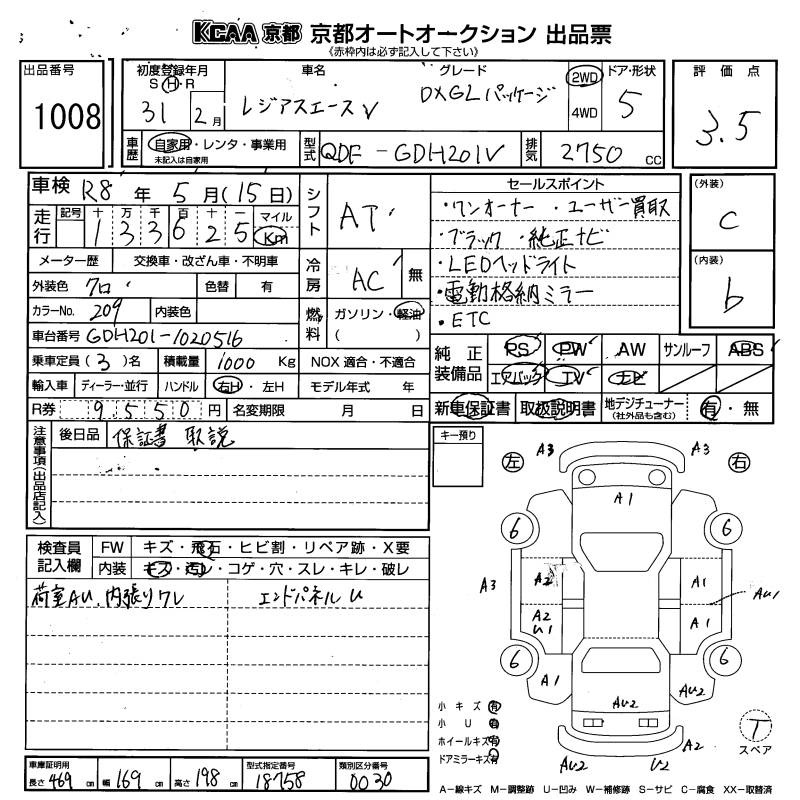 KCAA 京都 京都オートオークション 出品票
《赤枠内は必ず記入して下さい》
出品番号
1008
初度登録年月
S H・R
31 2月
車名
レジアスエースV
グレード
DXGLパッケージ
2WD
4WD
ドア・形状
5
評価点
3.5
車歴
自家用・レンタ・事業用
未記入は自家用
型式
QDF-GDH201V
排気
2750 CC
車検 R8 年 5 月(15日)
走行
記号 十 万 千 百 十 一 マイル
1 3 3 6 2 5 Km
シフト
AT
メーター歴 交換車・改ざん車・不明車
冷房
AC 無
外装色 クロ 色替 有
カラーNo. 209 内装色
燃料
ガソリン・軽油
( )
車台番号 GDH201-1020516
乗車定員(3)名 積載量 1000 Kg NOX 適合・不適合
輸入車 ディーラー・並行 ハンドル 右H・左H モデル年式 年
R券 9550円 名変期限 月 日
セールスポイント
・ワンオーナー ・ユーザー買取
・ブラック ・純正ナビ
・LEDヘッドライト
・電動格納ミラー
・ETC
(外装)
C
(内装)
b
純正装備品
PS PW AW サンルーフ ABS
エアバッグ TV ナビ
新車保証書 取扱説明書 地デジチューナー 有・無
(社外品も含む)
注意事項(出品店記入)
後日品 保証書 取説
キー預り
左
右
A3
A3
A1
6
6
A3
A2
A1
AU1
A2
U1
A1
6
6
A1
AU2
AU2
A2
AU2
U2
検査員記入欄
FW キズ・飛石・ヒビ割・リペア跡・X要
内装 キズ・汚レ・コゲ・穴・スレ・キレ・破レ
荷室AU、内張りワレ
エンドパネルU
小キズ 有
小U 有
ホイールキズ 有
ドアミラーキズ 有
T
スペア
車庫証明用
長さ 469 cm 幅 169 cm 高さ 198 cm
型式指定番号
18758
類別区分番号
0030
A－線キズ M－調整跡 U－凹み W－補修跡 S－サビ C－腐食 XX－取替済